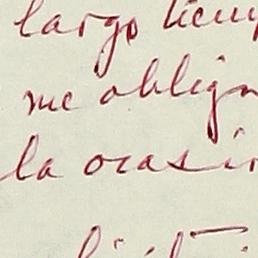 largo tiem
me oblig
la ocasi